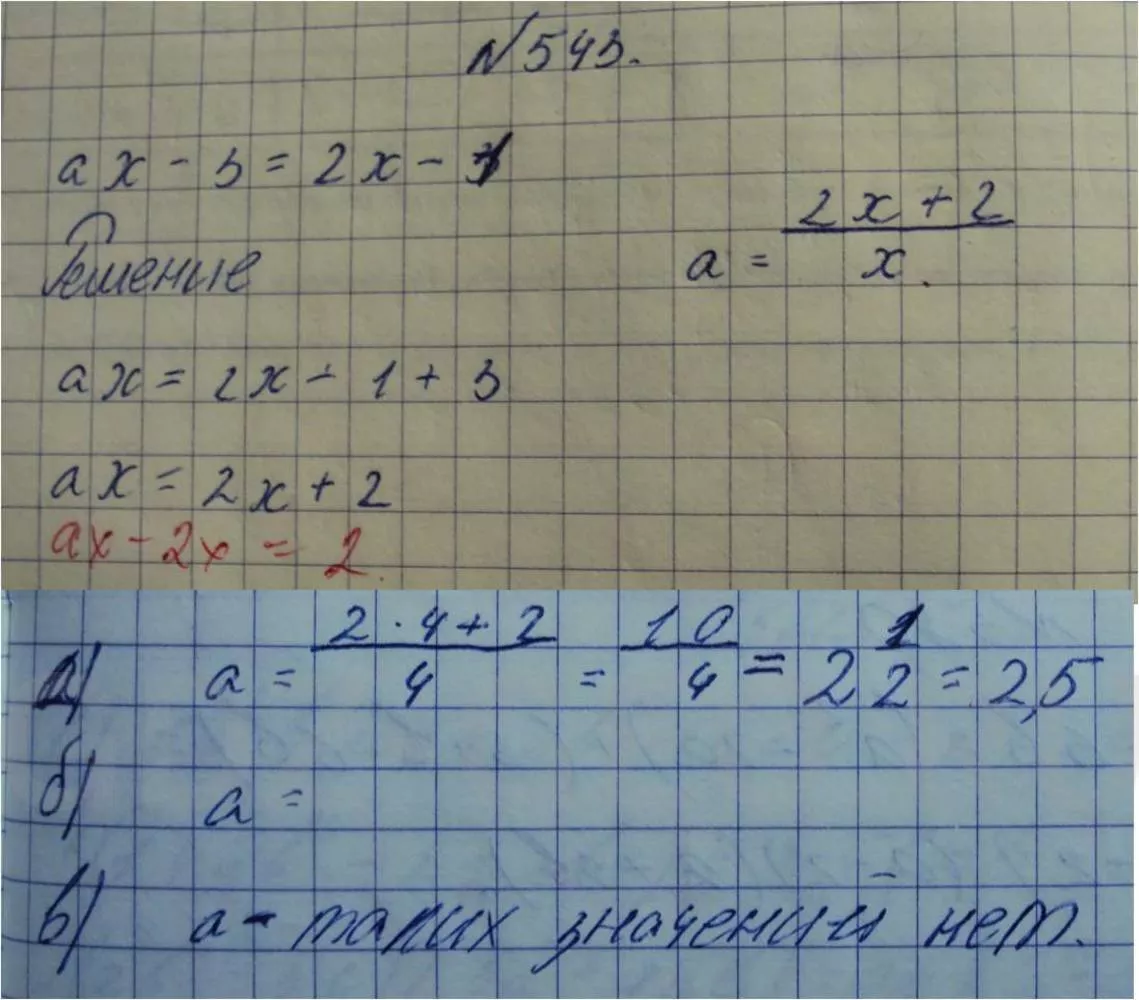 N543.
ax - 3 = 2x - 1
Решение
a = (2x + 2)/x.
ax = 2x - 1 + 3
ax = 2x + 2
ax - 2x = 2.
а) a = (2·4+2)/4 = 10/4 = 2 1/2 = 2,5
б) a =
в) a - таких значений нет.